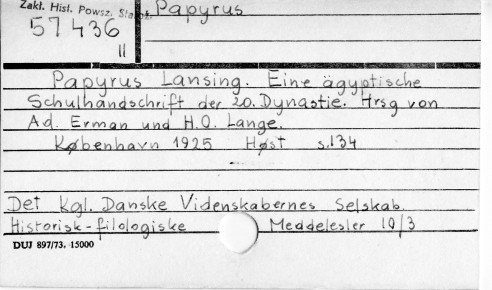 Zakł. Hist. Powsz. Staroż.
Papyrus
57436
II
Papyrus Lansing. Eine ägyptische
Schulhandschrift der 20. Dynastie. Hrsg von
Ad. Erman und H.O. Lange.
København 1925 Høst s.134
Det Kgl. Danske Videnskabernes Selskab.
Historisk-filologiske Meddelesler 10/3
DUJ 897/73. 15000